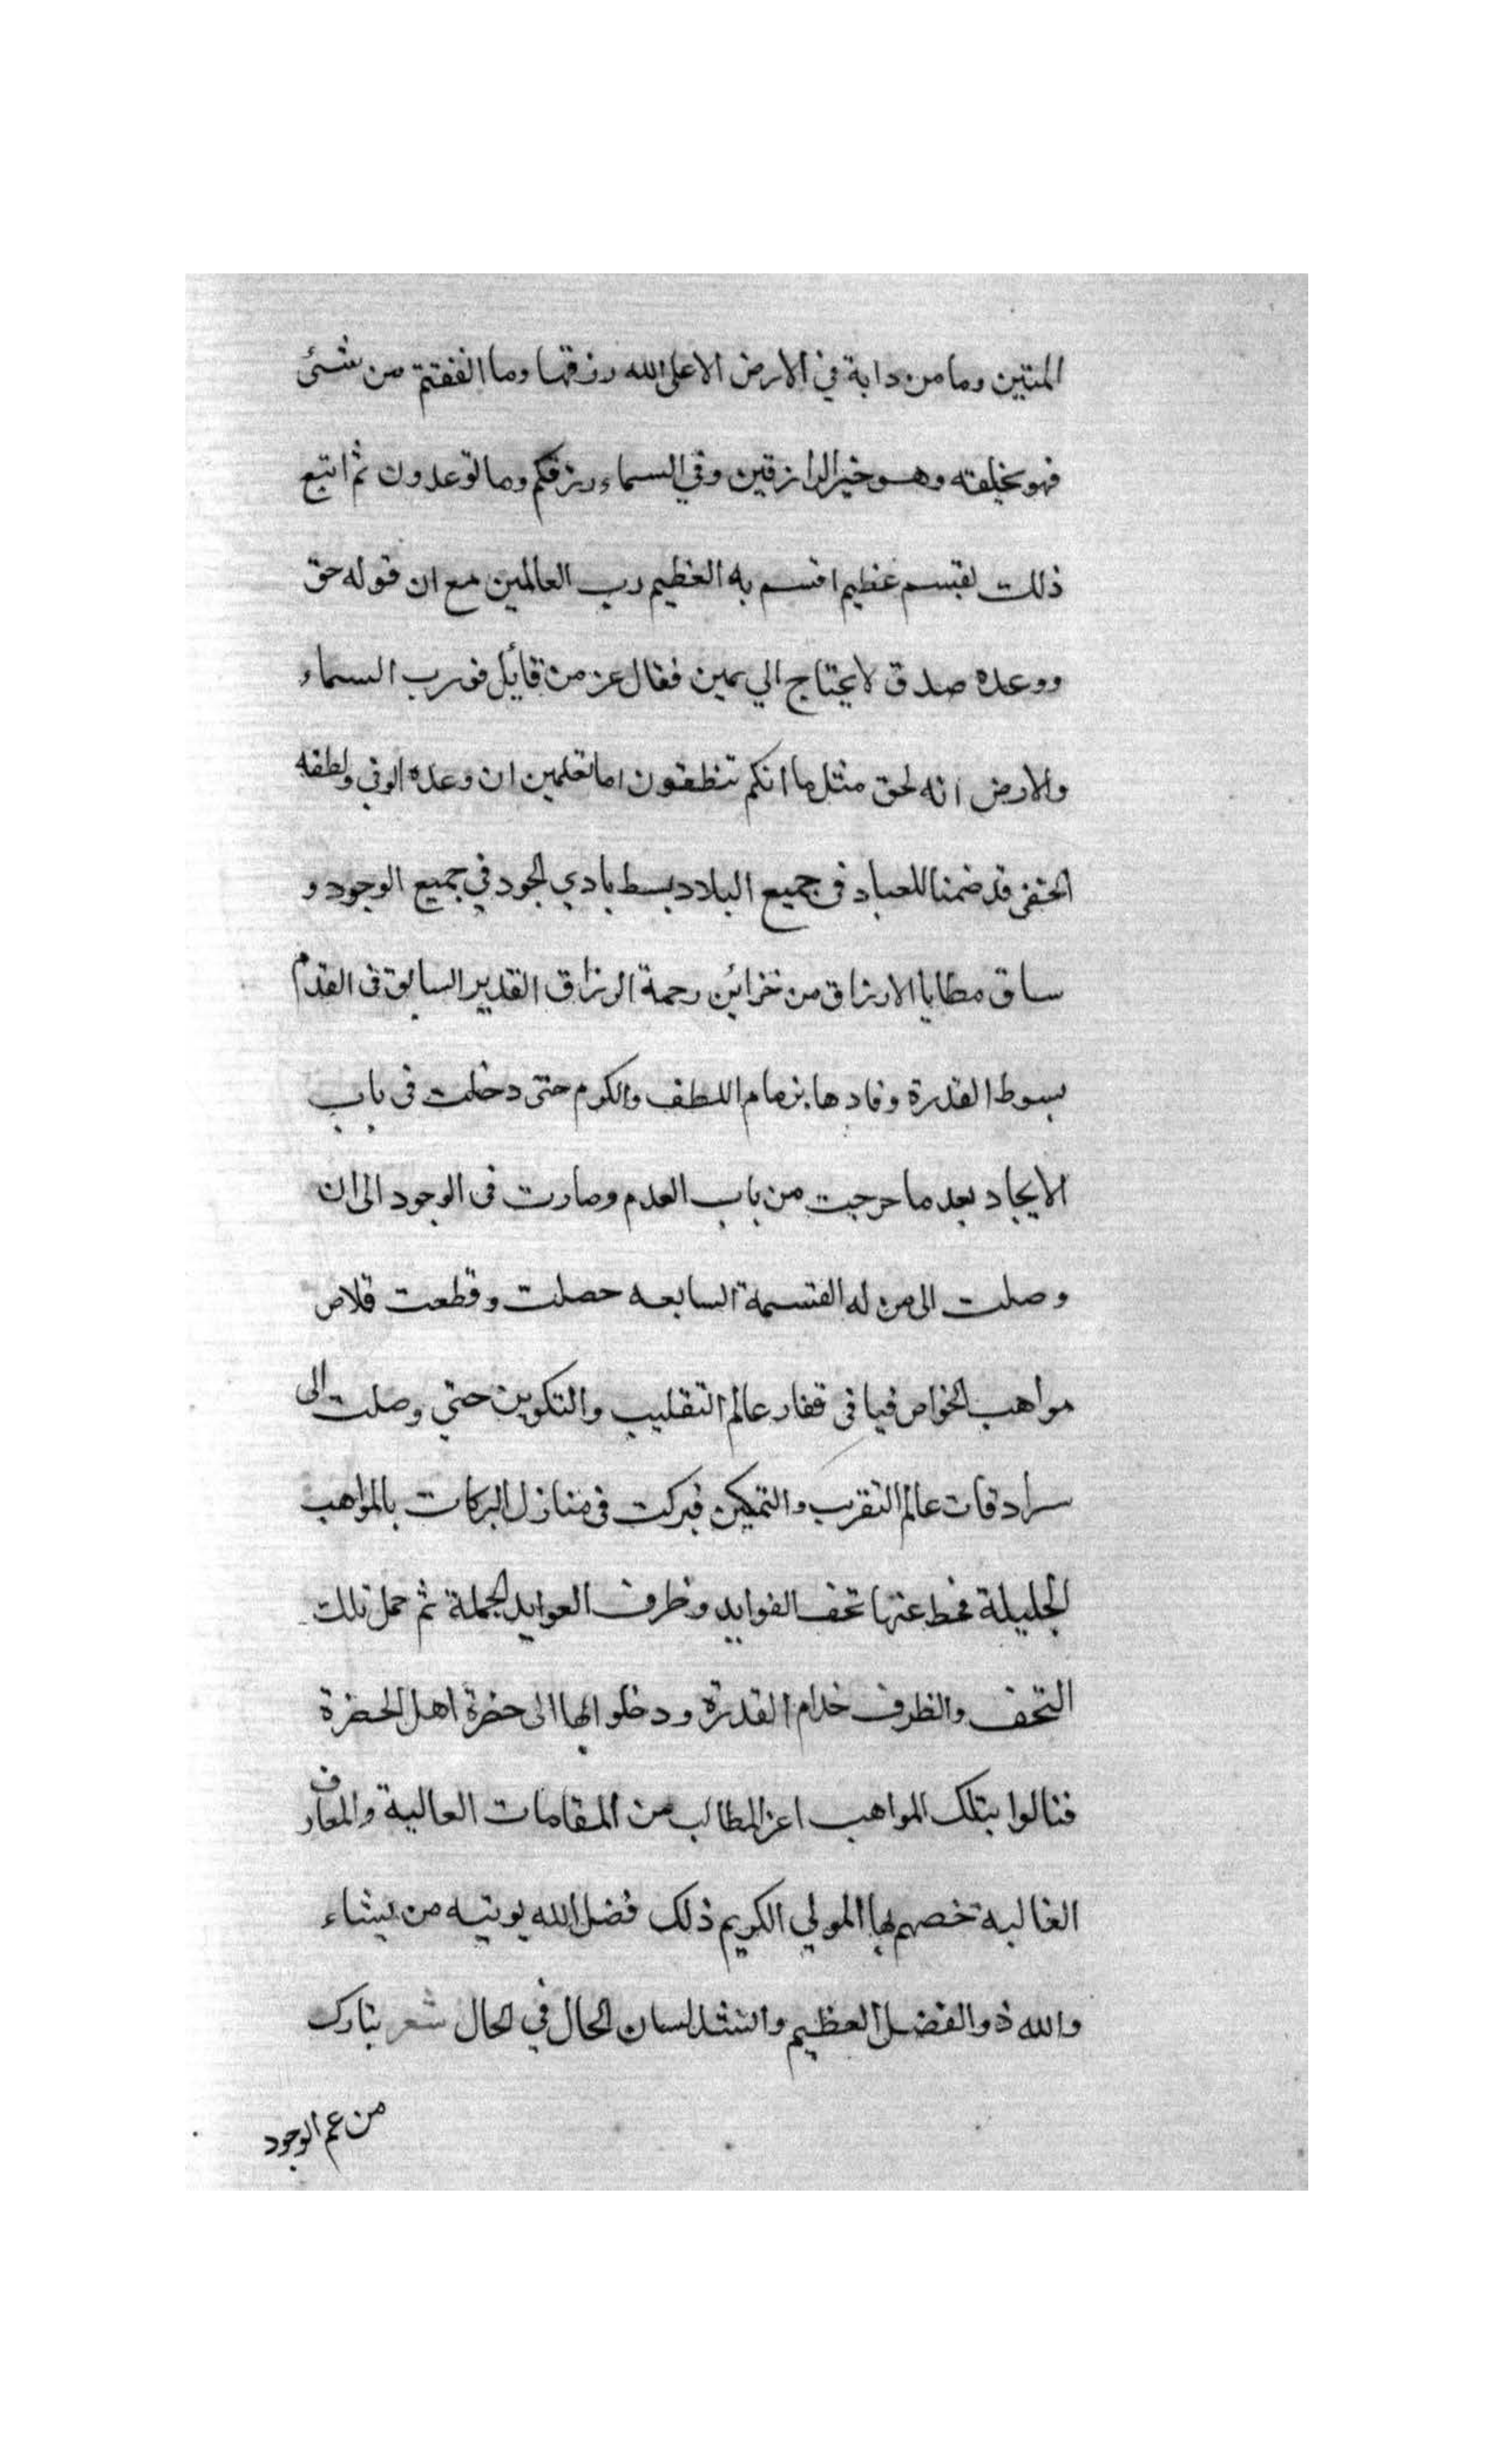 المتين وما من دابة في الارض الا على الله رزقها وما انفقتم من شئ
فهو يخلفه وهو خير الرازقين وفي السماء رزقكم وما توعدون ثم اتبع
ذلك بقسم عظيم اقسم به العظيم رب العالمين مع ان قوله حق
ووعده صدق لا يحتاج الي يمين فقال عز من قائل فورب السماء
والارض انه لحق مثل ما انكم تنطقون اما تعلمين ان وعده الوفي ولطفه
الخفي قد ضمنا للعباد في جميع البلاد بسط يادي الجود في جميع الوجود و
ساق مطايا الارزاق من خزائن رحمة الرزاق القدير السابق في القدم
بسوط القدرة وقادها بزمام اللطف والكرم حتى دخلت في باب
الايجاد بعد ما خرجت من باب العدم وصارت في الوجود الى ان
وصلت الى من له القسمة السابعه حصلت وقطعت قلاص
مواهب الخواص فيافي قفار عالم التقليب والتكوين حتي وصلت الى
سرادقات عالم التقرب والتمكين فبركت في منازل البركات بالمواهب
الجليلة فحط عنها تحف الفوايد وظرف العوايد الجملة ثم حمل تلك
التحف والظرف خدام القدرة ودخلوا بها الى حضرة اهل الحضرة
فنالوا بتلك المواهب اعز المطالب من المقامات العالية والمعارف
الغالية خصهم بها المولي الكريم ذلك فضل الله يوتيه من يشاء
والله ذو الفضل العظيم وانشد لسان الحال في الحال شعر تبارك
من عم الوجود